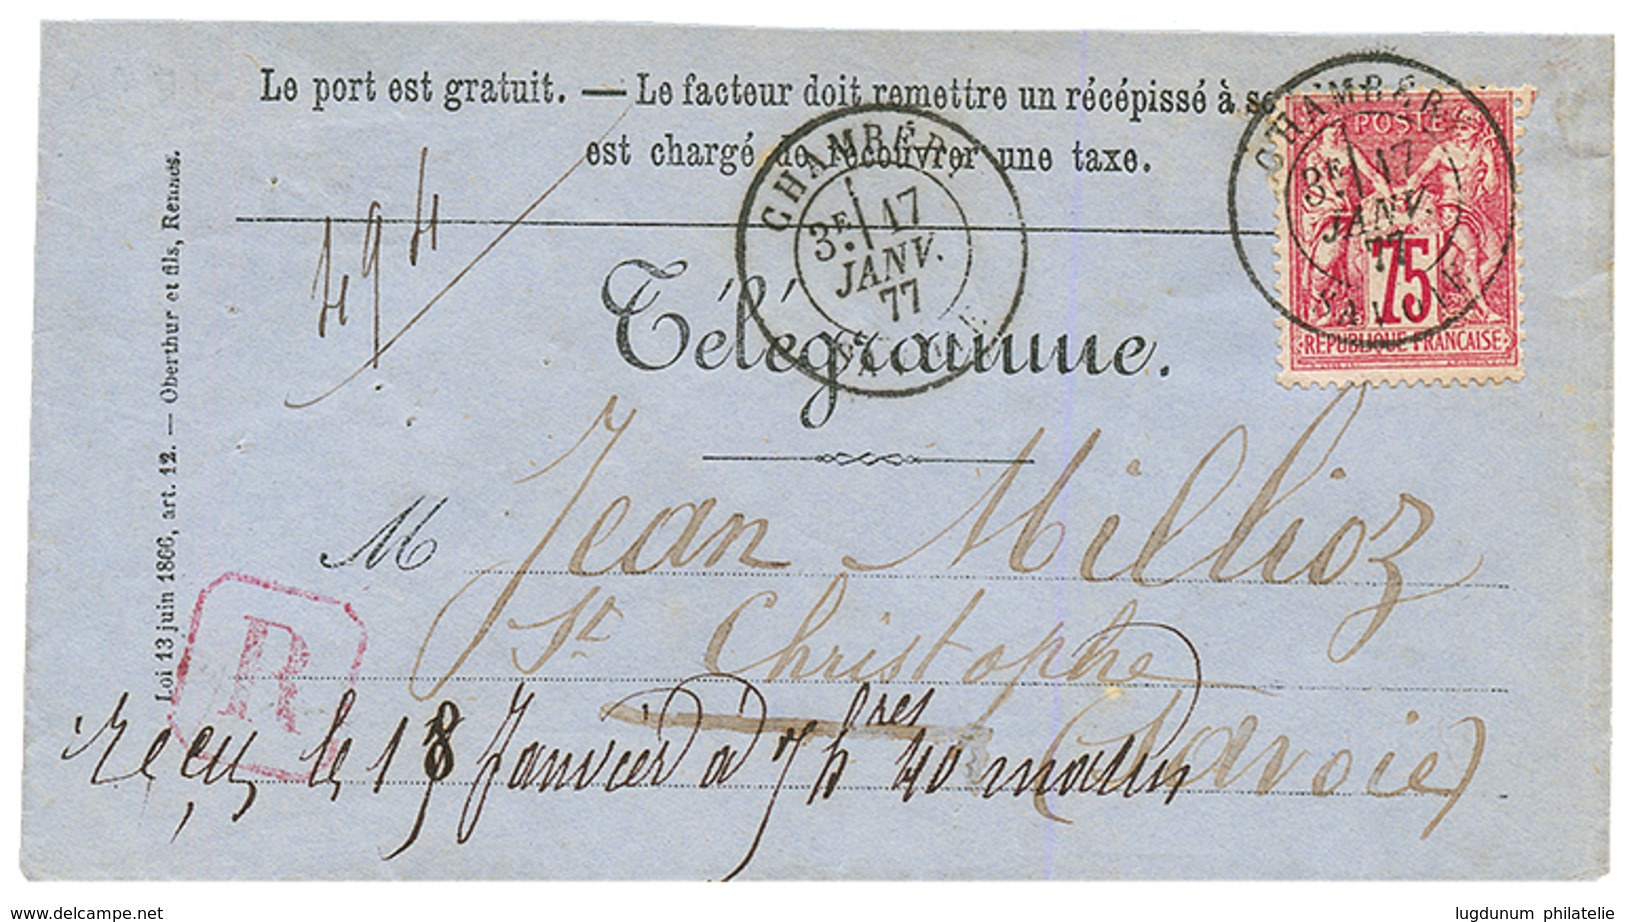 Le port est gratuit. — Le facteur doit remettre un récépissé à
est chargé de recouvrer une taxe.
494
CHAMBÉRY
3E 17
JANV.
77
CHAMBÉRY
3E 17
JANV.
77
SAVOIE
POSTE
75
RÉPUBLIQUE FRANÇAISE
Télégramme.
M Jean Millioz
St Christophe
(Savoie)
Reçu le 18 Janvier à 7 hres 40 matin
R
Loi 13 juin 1866, art. 12. — Oberthur et fils, Rennes.
www.delcampe.net
lugdunum philatelie